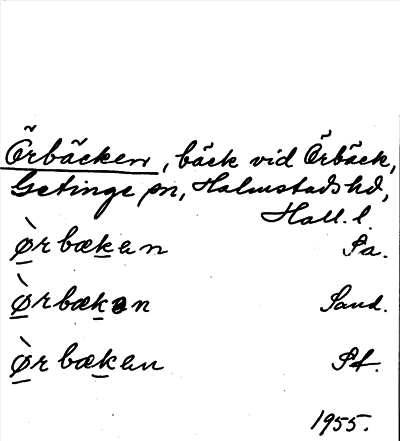 Örbäcken, bäck vid Örbäck,
Getinge sn, Halmstads hd,
Hall. l.
Ø̀rbæken Sa.
Ø̀rbækən Sand.
Ø̀rbæken St.
1955.